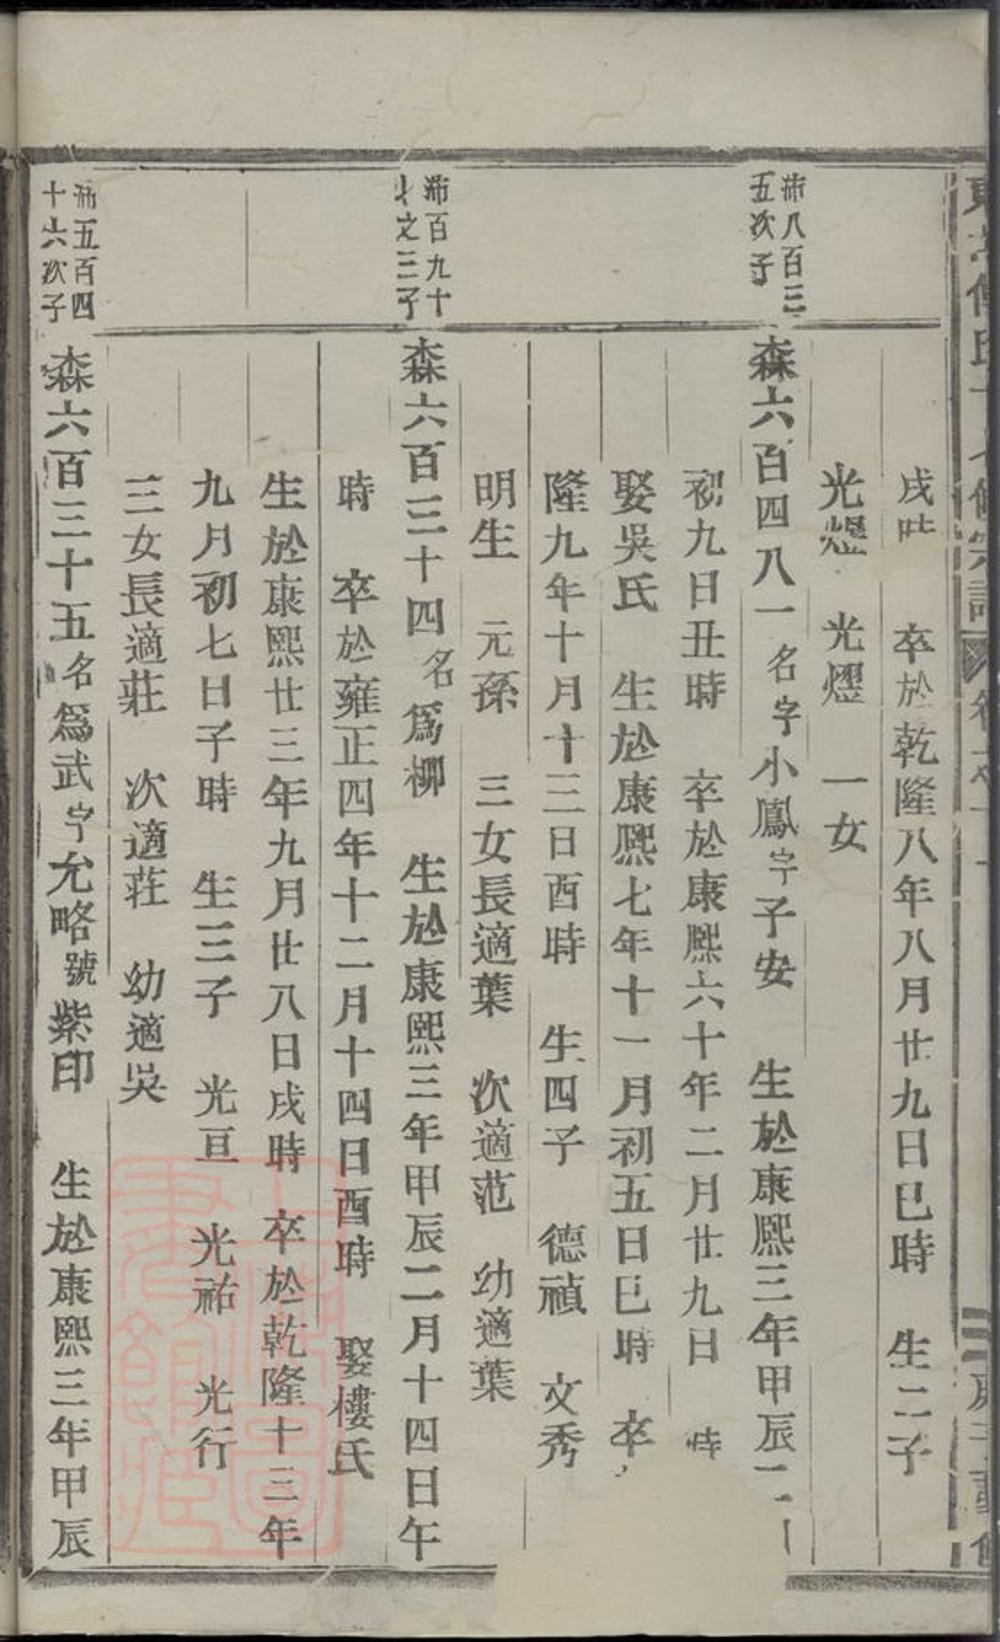 戌時 卒於乾隆八年八月廿九日巳時 生二子
光煜 光熠 一女
沛八百三
五次子
森六百四八一名字小鳳字子安 生於康熙三年甲辰二月
初九日丑時 卒於康熙六十年二月廿九日 時
娶吳氏 生於康熙七年十一月初五日巳時 卒
隆九年十月十三日酉時 生四子 德禎 文秀
明生 元孫 三女長適葉 次適范 幼適葉
沛百九十
之三子
森六百三十四名爲柳 生於康熙三年甲辰二月十四日午
時 卒於雍正四年十二月十四日酉時 娶樓氏
生於康熙廿三年九月廿八日戌時 卒於乾隆十三年
九月初七日子時 生三子 光亘 光祐 光行
三女長適莊 次適莊 幼適吳
沛五百四
十六次子
森六百三十五名爲武字允略號紫印 生於康熙三年甲辰